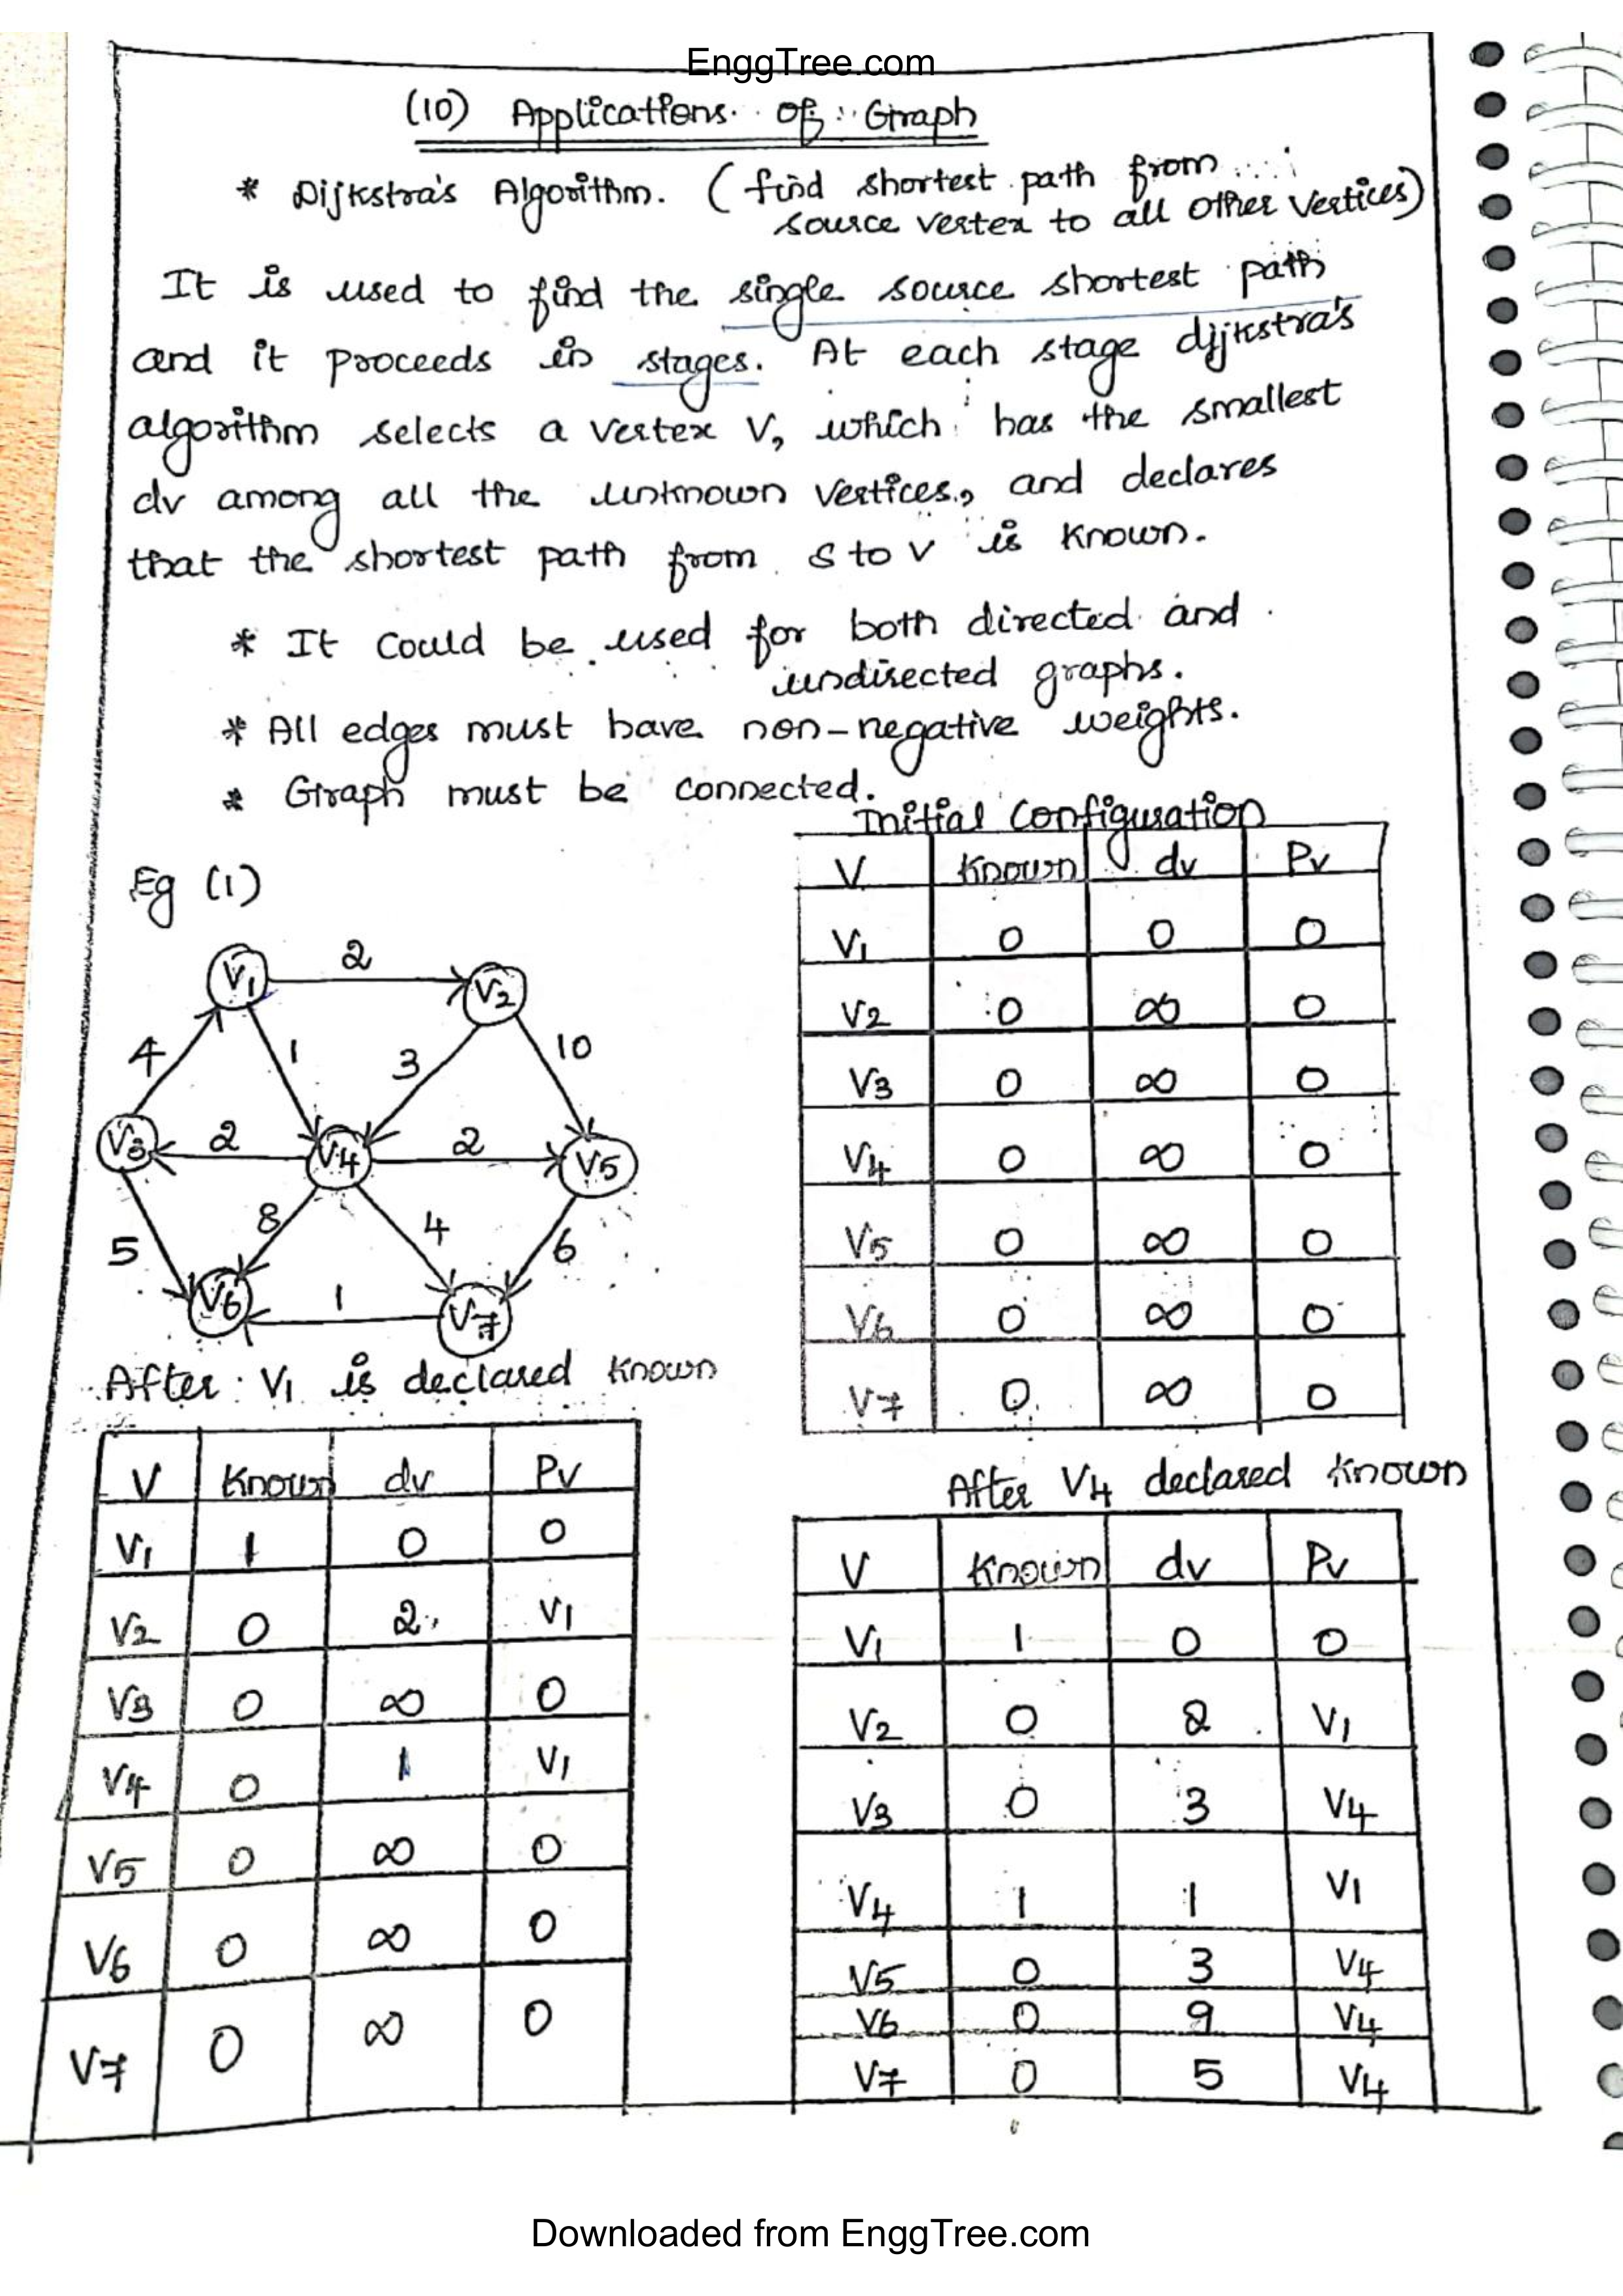 EnggTree.com
(10) Applications of Graph
* Dijkstra's Algorithm. (find shortest path from
source vertex to all other vertices)
It is used to find the single source shortest path
and it proceeds in stages. At each stage dijkstra's
algorithm selects a vertex V, which has the smallest
dv among all the unknown vertices, and declares
that the shortest path from S to V is known.
* It could be used for both directed and
undirected graphs.
* All edges must have non-negative weights.
* Graph must be connected.
Initial Configuration
V Known dv Pv
V1 0 0 0
V2 0 ∞ 0
V3 0 ∞ 0
V4 0 ∞ 0
V5 0 ∞ 0
V6 0 ∞ 0
V7 0 ∞ 0
Eg (1)
V1 2 V2
4 1 3 10
V3 2 V4 2 V5
5 8 4 6
V6 1 V7
After V1 is declared known
V Known dv Pv
V1 1 0 0
V2 0 2 V1
V3 0 ∞ 0
V4 0 1 V1
V5 0 ∞ 0
V6 0 ∞ 0
V7 0 ∞ 0
After V4 declared known
V Known dv Pv
V1 1 0 0
V2 0 2 V1
V3 0 3 V4
V4 1 1 V1
V5 0 3 V4
V6 0 9 V4
V7 0 5 V4
Downloaded from EnggTree.com